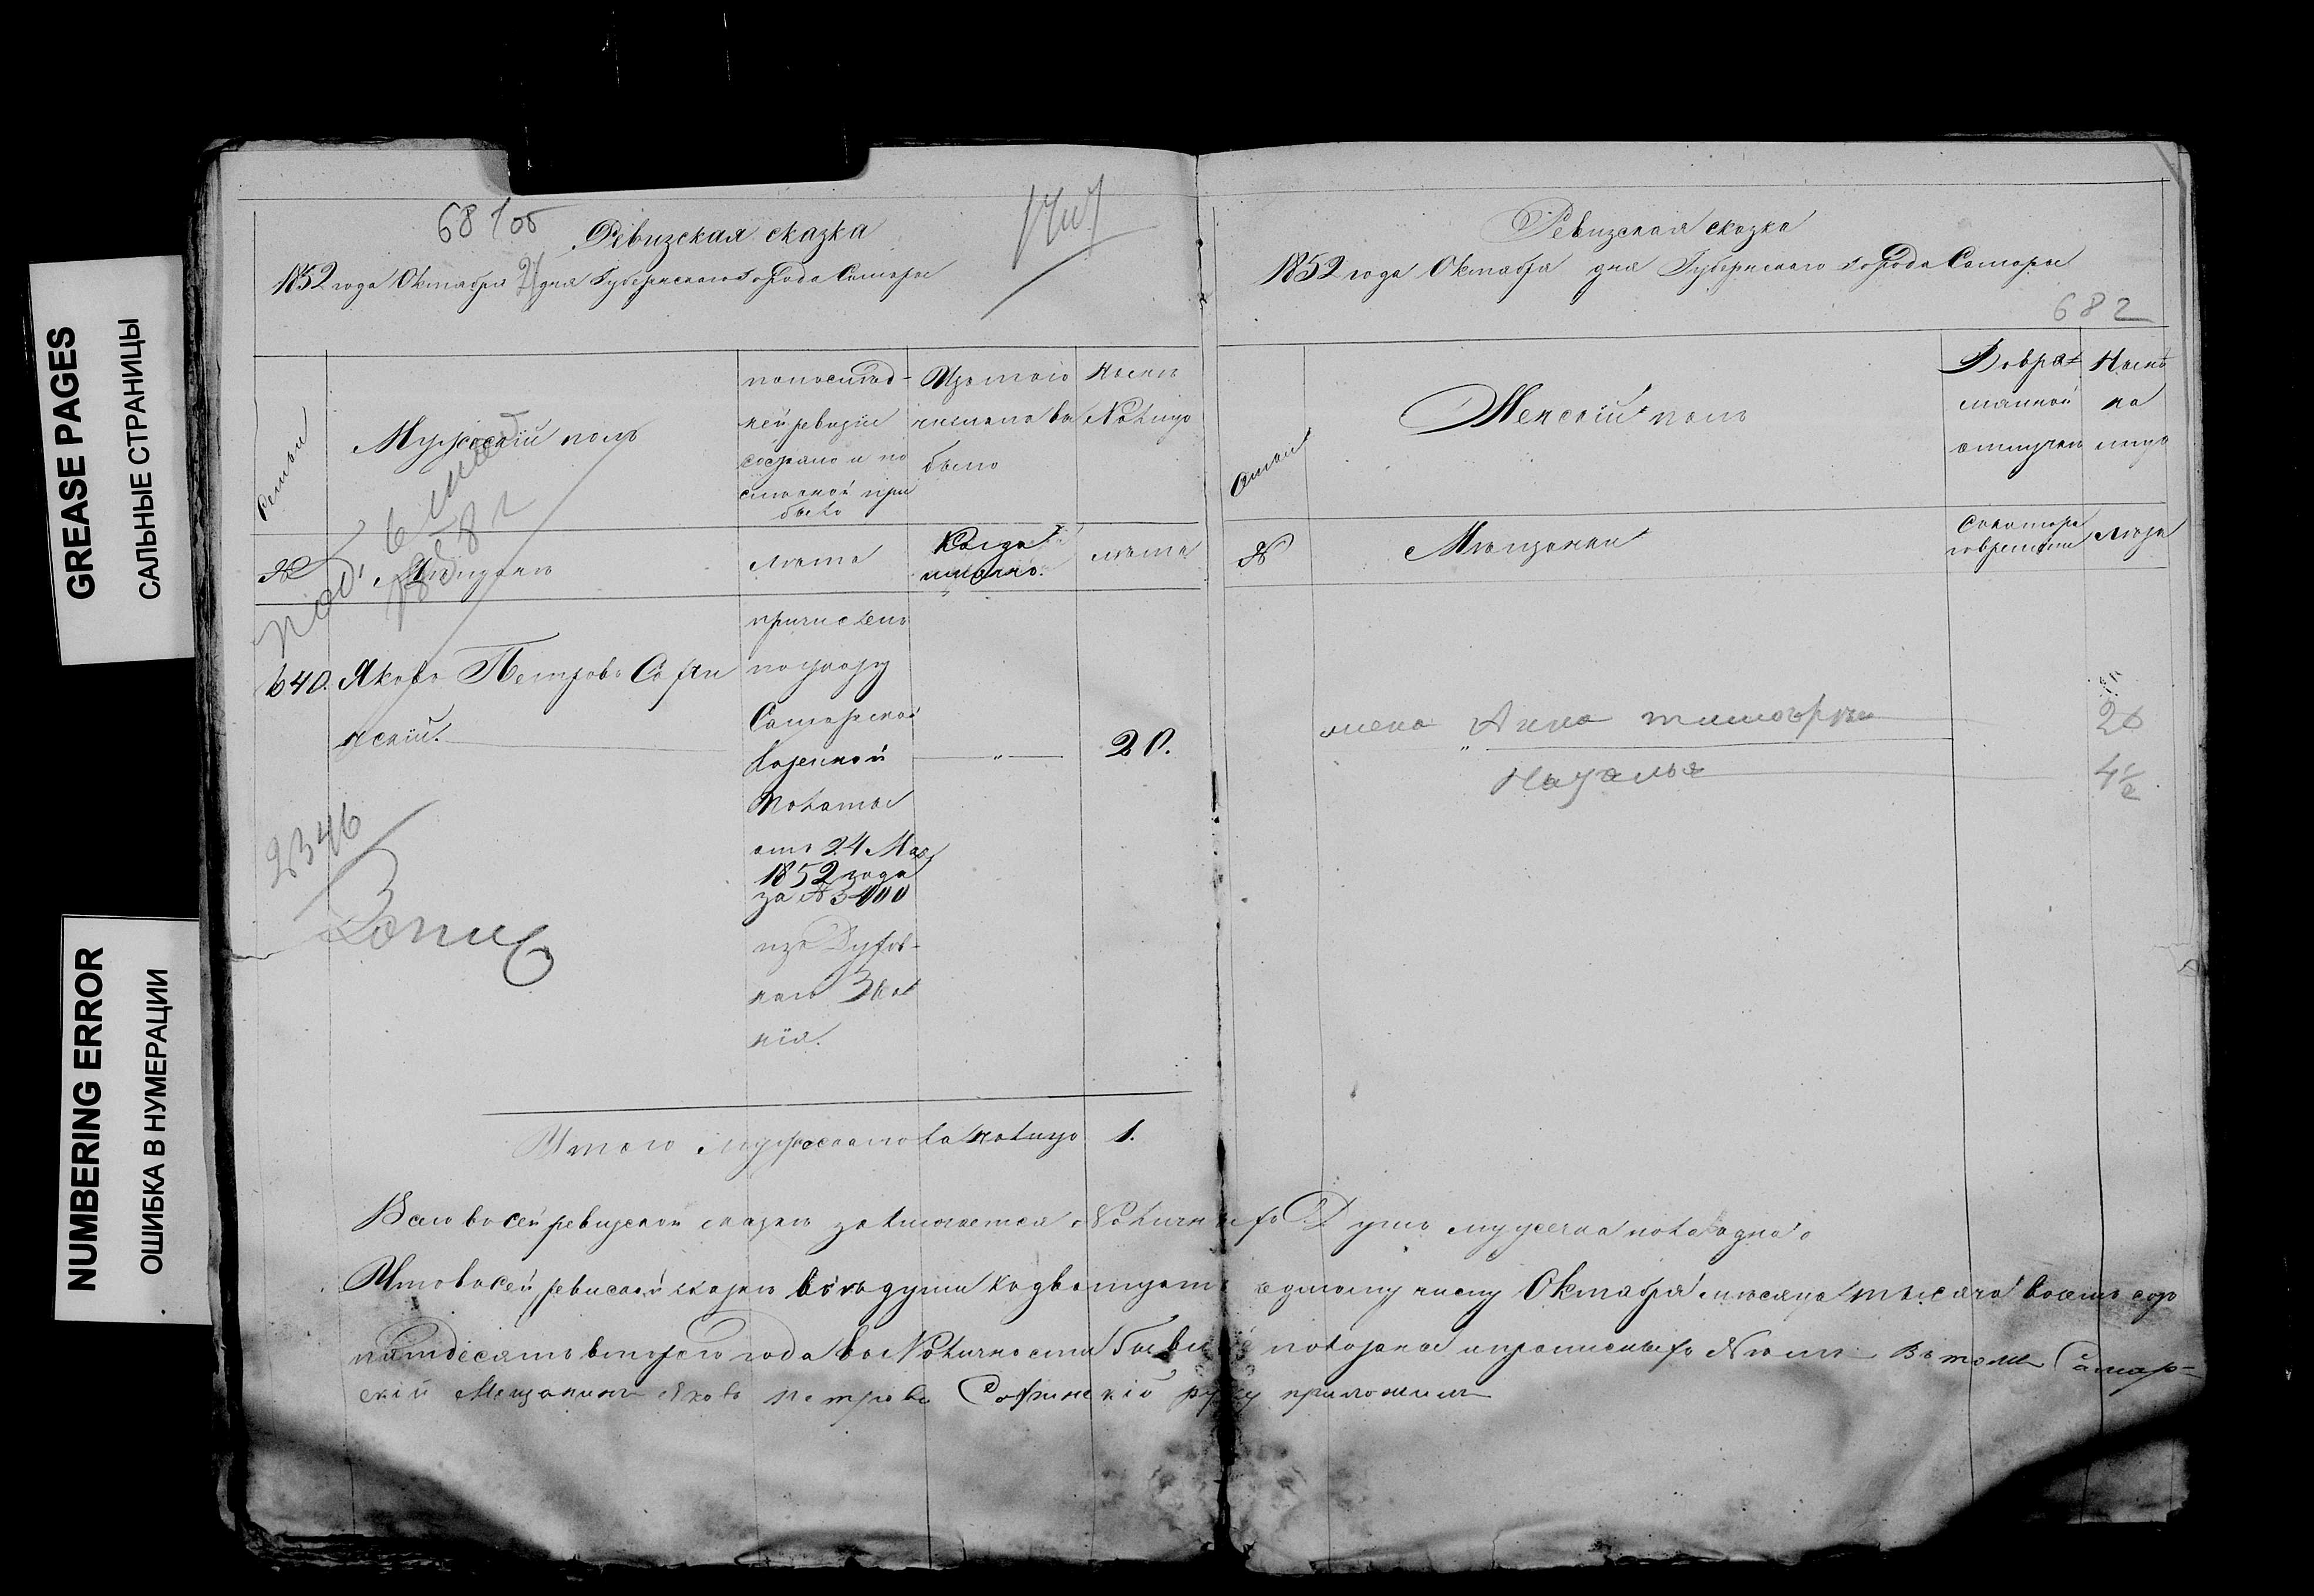 GREASE PAGES
САЛЬНЫЕ СТРАНИЦЫ
NUMBERING ERROR
ОШИБКА В НУМЕРАЦИИ
68 об
Ревизская сказка
1852 года Октября 21 дня Губернскаго Города Самары
Семьи
Мужескій полъ
по послѣд-
ней ревизіи
состояло и по
слѣ оной при
было
Изъ того
числа выбыло
Нынѣ
На лицо
№
Мѣщанъ
лѣта
Когда
именно.
лѣта
640. Яковъ Петровъ Софи
нскій.
причисленъ
по указу
Самарской
Казенной
Палаты
отъ 24 Мая
1852 года
за № 3400
изъ Духов-
наго Зва
нія.
"
20.
2346
Итого мужеска пола на лицо 1.
Ревизская сказка
1852 года Октября дня Губернскаго Города Самары
682
Семьи
Женскій полъ
Во вре-
мянной
отлучкѣ
Нынѣ
на
лицо
№
Мѣщанки
Съ котора
го времени
лѣта
жена Анна
20
"
4½
Всего въ сей ревизской сказкѣ заключается Наличныхъ Душъ мужеска пола одна
Что въ сей ревиской сказкѣ всѣ души къ двадцать одному числу Октября мѣсяца тысяча восемь сотъ
пятдесятъ втораго года въ Наличности бывшія показаны и прописныхъ Нѣтъ въ томъ Самар-
скій Мещанинъ Яковъ Петровъ Софинскій руку приложилъ